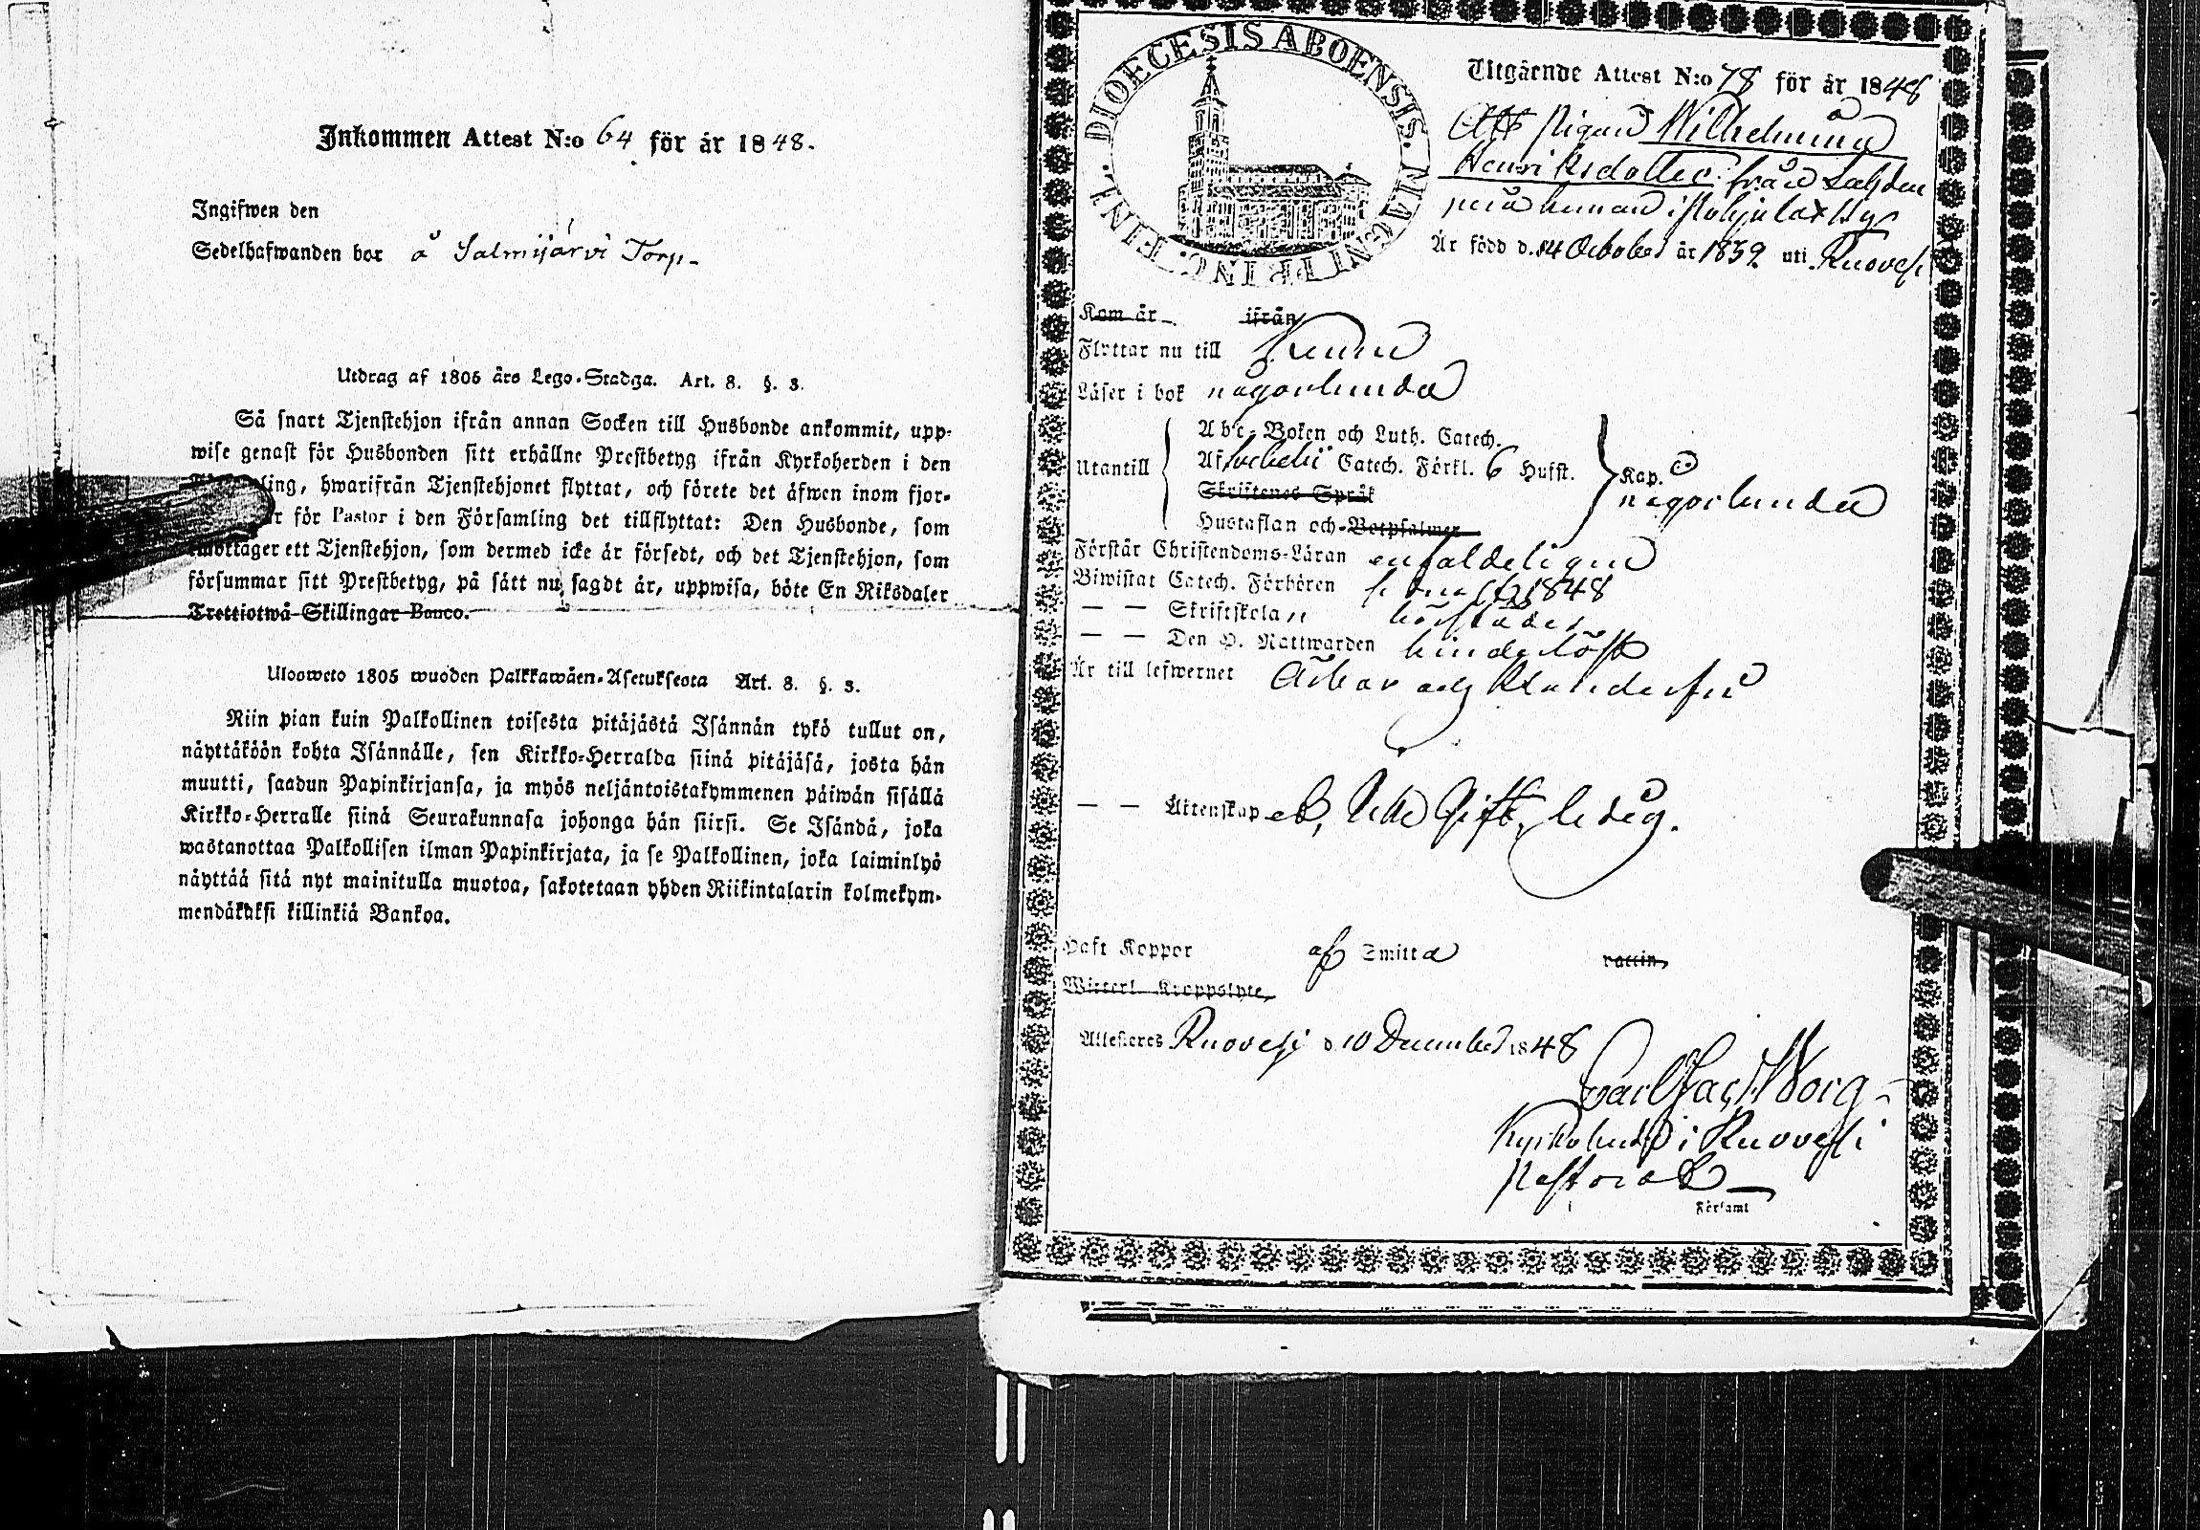 Inkommen Attest N:o 64 för år 1848.
Ingifwen den
Sedelhafwanden bor å Salmijärvi Torp.
Utdrag af 1805 års Lego-Stadga. Art. 8. §. 3.
Så snart Tjenstehjon ifrån annan Socken till Husbonde ankommit, upp-
wise genast för Husbonden sitt erhållne Prestbetyg ifrån Kyrkoherden i den
hwarifrån Tjenstehjonet flyttat, och förete det äfwen inom fjor-
för Pastor i den Församling det tillflyttat: Den Husbonde, som
emottager ett Tjenstehjon, som dermed icke är försedt, och det Tjenstehjon, som
försummar sitt Prestbetyg, på sätt nu sagdt är, uppwisa, böte En Riksdaler
Trettiotwå Skillingar Banco.
Ulosweto 1805 wuoden Palkkawäen-Asetuksesta Art. 8. §. 3.
Niin pian kuin Palkollinen toisesta pitäjästä Isännän tykö tullut on,
näyttäköön kohta Isännälle, sen Kirkko-Herralda siinä pitäjäsä, josta hän
muutti, saadun Papinkirjansa, ja myös neljäntoistakymmenen päiwän sisällä
Kirkko-Herralle siinä Seurakunnasa johonga hän siirsi. Se Isändä, joka
wastanottaa Palkollisen ilman Papinkirjata, ja se Palkollinen, joka laiminlyö
näyttää sitä nyt mainitulla muotoa, sakotetaan yhden Riikintalarin kolmekym-
mendäkaksi killinkiä Bankoa.
DIOECESIS ABOENSIS. MAGNI PRINC. FINL.
Utgående Attest N:o 78 för år 1848
Att Pigan Wilhelmina
Henriksdotter från
Är född d. 14 October år 1832 uti Ruovesi
Kom år ifrån
Flyttar nu till
Läser i bok någorlunda
Abc-Boken och Luth. Catech.
Utantill Af Svebelii Catech. Förkl. 6 Hufst. Kap.
någorlunda
Skriftenes Språk
Hustaflan och Botpsalmer
Förstår Christendoms-Läran enfaldeligen
Biwistat Catech. Förhören 1848
— — Skriftskola
— — Den H. Nattwarden
Är till lefwernet Ärbar och klanderfri
— — Äktenskap Icke Gift, ledig.
Haft Koppor af Smitta vaccin,
Witterl. Kroppslyte,
Attesteras Ruovesi d. 10 December 1848
Carl
Kyrkoherde i Ruovesi
Pastorat
Församl